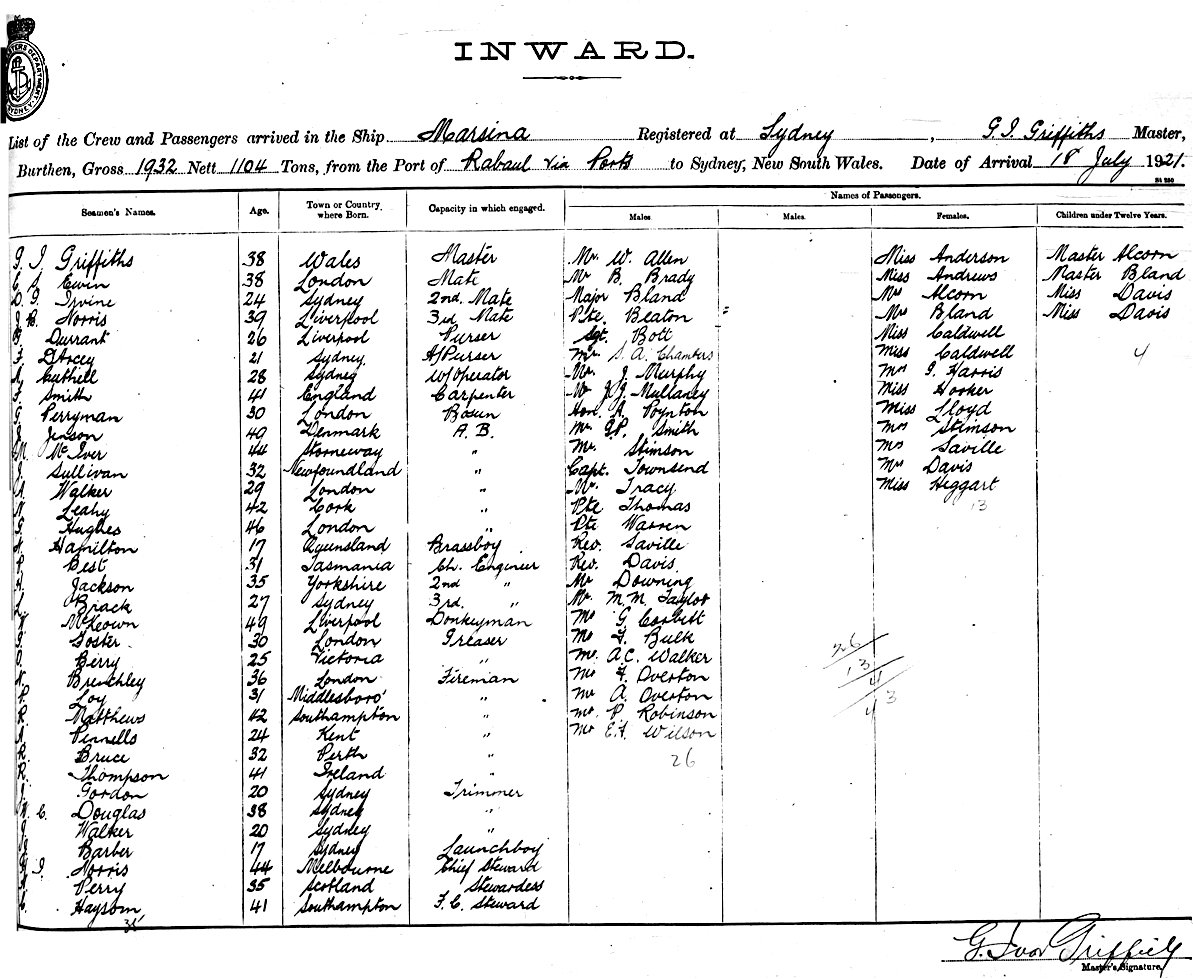 CUSTOMS DEPARTMENT SYDNEY
INWARD.
List of the Crew and Passengers arrived in the Ship Marsina Registered at Sydney, G. I. Griffiths Master,
Burthen, Gross 1932 Nett 1104 Tons, from the Port of Rabaul via Ports to Sydney, New South Wales. Date of Arrival 18 July 1921.
Names of Passengers.
Seamen's Names. Age. Town or Country where Born. Capacity in which engaged. Males Males. Females. Children under Twelve Years.
G. I. Griffiths 38 Wales Master Mr. W. Allen Miss Anderson Master Alcorn
Ewin 38 London Mate Mr B. Brady Miss Andrews Master Bland
Irvine 24 Sydney 2nd. Mate Major Bland Mrs Alcorn Miss Davis
B. Norris 39 Liverpool 3rd Mate Pte. Beaton Mrs Bland Miss Davis
Durrant 26 Liverpool Purser Sgt. Bott Miss Caldwell
21 Sydney. A/Purser Mr. S. A. Chambers Miss Caldwell 4
Cuthell 28 Sydney W/Operator Mr. J. Murphy Mrs I. Harris
Smith 41 England Carpenter Mr J. J. Mullaney Miss Hooker
Perryman 30 London Bosun Hon. A. Poynton Miss Lloyd
Jenson 49 Denmark A. B. Mr. G. P. Smith Mrs Stimson
McIver 44 Stornoway " Mr. Stimson Mrs Saville
Sullivan 32 Newfoundland " Capt. Townsend Mrs Davis
Walker 29 London " Mr. Tracy Miss Heggart
Leahy 42 Cork " Pte Thomas 13
Hughes 46 London " Pte Warren
Hamilton 17 Queensland Brassboy Rev. Saville
Best 31 Tasmania Ch. Engineer Rev. Davis
Jackson 35 Yorkshire 2nd " Mr Downing
Brack 27 Sydney 3rd. " Mr. M. M. Taylor
McKeown 49 Liverpool Donkeyman Mr G. Corbett
Foster 30 London Greaser Mr F. Bulk 26
Berry 25 Victoria " Mr. A. C. Walker 13
Brenchley 36 London Fireman Mr F. Overton 4
Loy 31 Middlesboro' " Mr A. Overton 43
Matthews 42 Southampton " Mr. P. Robinson
Pennells 24 Kent " Mr E. F. Wilson
Bruce 32 Perth " 26
Thompson 41 Ireland "
Gordon 20 Sydney Trimmer
C. Douglas 38 Sydney "
Walker 20 Sydney "
Barber 17 Sydney Launchboy
I. Norris 44 Melbourne Chief Steward
Perry 35 Scotland Stewardess
Haysom 41 Southampton F. C. Steward
35
G. Ivor Griffiths
Master's Signature.